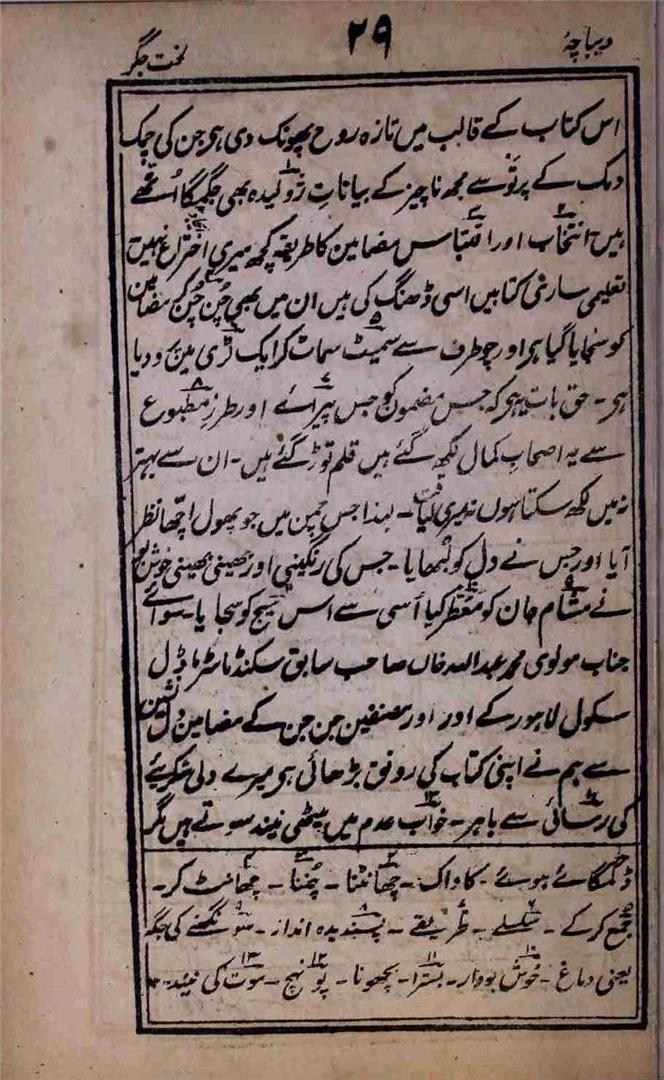 دیباچۂ
۲۹
لخت جگر
اس کتاب کے قالب میں تازہ روح پھونک دی ہی جن کی چمک
دمک کے پرتَو سے مجھ ناچیز کے بیاناتِ ژولیدہ بھی جگمگا اُٹھے
ہیں انتخاب اور اقتباس مضامین کا طریقہ کچھ میری اختراع نہیں
تعلیمی ساری کتابیں اسی ڈھنگ کی ہیں ان میں بھی چُن چُن کر مضامین
کو سنجایا گیا ہی اور چوطرف سے سمیٹ سماٹ کر ایک لڑی میں پرودیا
ہی۔ حق بات یہ ہی کہ جس مضمون کو جس پیرائے اور طرزِ مطبوع
سے یہ اصحابِ کمال لکھ گئے ہیں قلم توڑ گئے ہیں۔ ان سے بہتر
نہ میں لکھ سکتا ہوں نہ میری لیاقت۔ لہذا جس چمن میں جو پھول اچھا نظر
آیا اور جس نے دل کو لُبھایا۔ جس کی رنگینی اور بھینی بھینی خوش بو
نے مشام جان کو معطّر کیا اُسی سے اس سیج کو سجایا۔ سوائے
جناب مولوی محمد عبد اللہ خاں صاحب سابق سکنڈ ماسٹر ماڈل
سکول لاہور کے اور اور مصنفین جن جن کے مضامین دل نشین
سے ہم نے اپنی کتاب کی رونق بڑھائی ہی میرے دلی شکریے
کی رسائی سے باہر۔ خواب عدم میں میٹھی نیند سوتے ہیں مگر
ڈگمگائے ہوئے۔ کاواک۔ چھانٹنا۔ چننا۔ چھانٹ کر۔
جمع کرکے۔ سلسلے۔ طریقے۔ پسندیدہ انداز۔ سونگھنے کی جگہ
یعنی دماغ۔ خوش بودار۔ بسترا۔ بچھونا۔ پونہچ۔ موت کی نیند۔